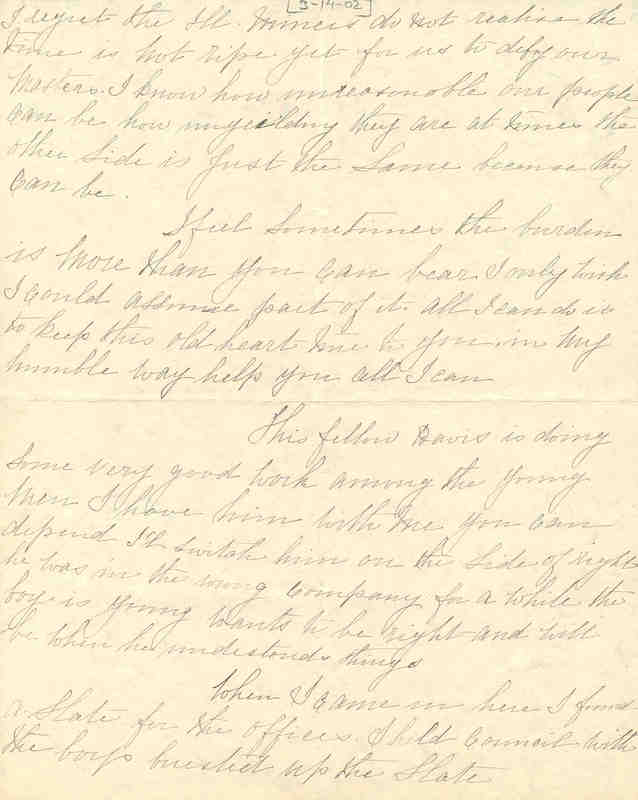 3-14-02
I regret the Ill. Miners do not realise the
time is not ripe yet for us to defy our
Masters. I know how unreasonable our people
can be how unyeilding they are at times the
other side is just the same because they
can be.
I feel sometimes the burden
is more than you can bear I only wish
I could assume part of it. all I can do is
to keep this old heart true to you, in my
humble way help you all I can
This fellow Davis is doing
some very good work among the young
men I have him with me you can
depend I'll switch him on the side of right
he was in the wrong company for a while the
boy is young wants to be right and will
be when he understands things
When I came in here I found
a slate for the offices. I held council with
the boys busted up the slate